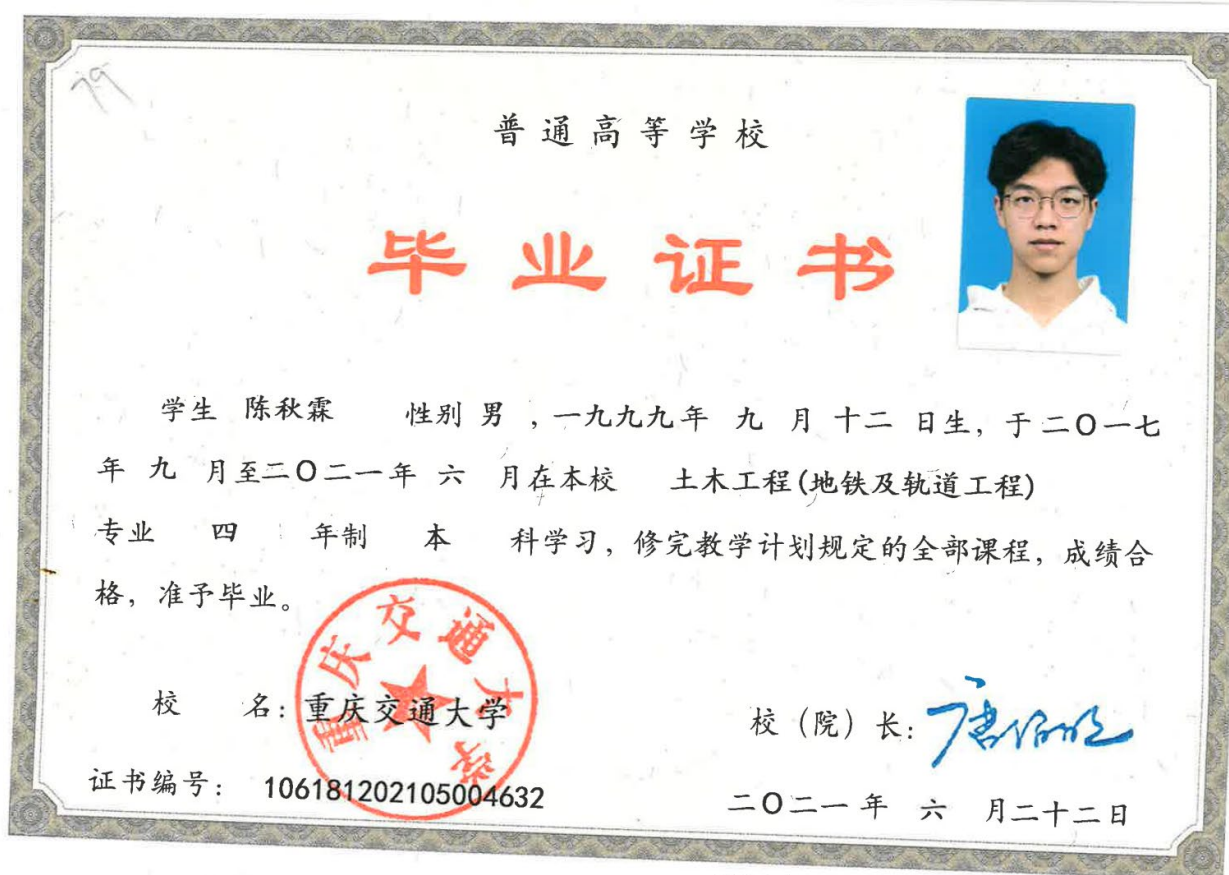 79
普通高等学校
毕业证书
学生 陈秋霖 性别 男 ，一九九九年 九 月 十二 日生，于二〇一七
年 九 月至二〇二一年 六 月在本校 土木工程(地铁及轨道工程)
专业 四 年制 本 科学习，修完教学计划规定的全部课程，成绩合
格，准予毕业。
重庆交通大学
校 名：重庆交通大学
校（院）长：唐伯明
证书编号： 106181202105004632
二〇二一年 六 月二十二日